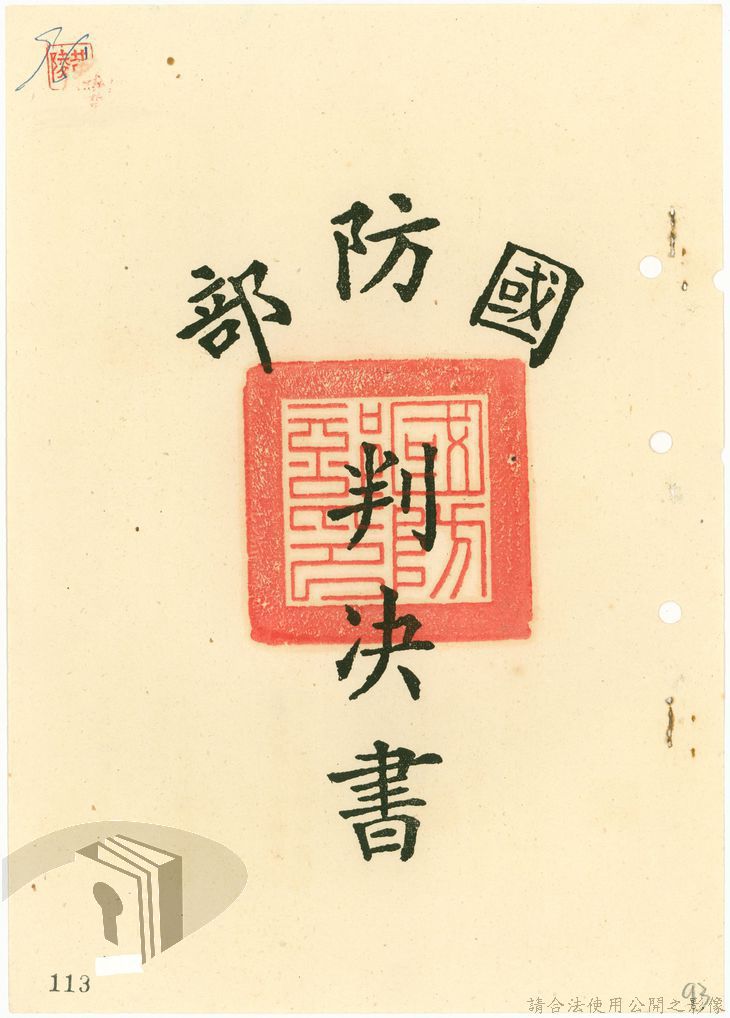 國防部
判決書
國防部印
113
93
請合法使用公開之影像